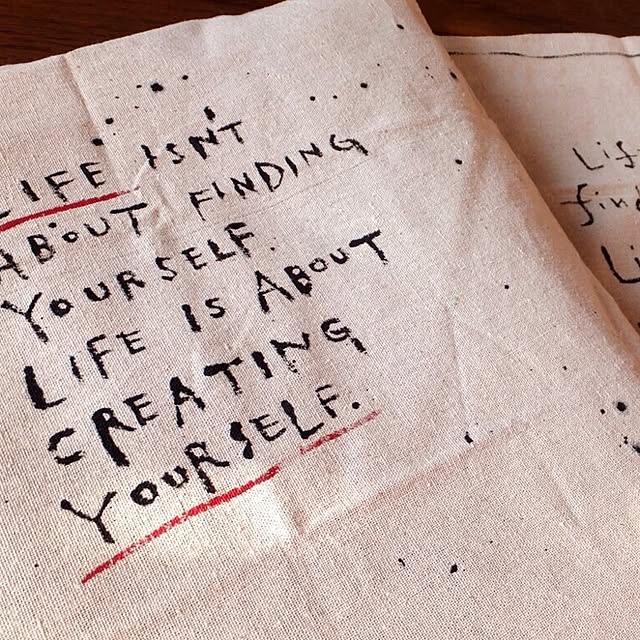 LIFE ISN'T
ABOUT FINDING
YOURSELF.
LIFE IS ABOUT
CREATING
YOURSELF.